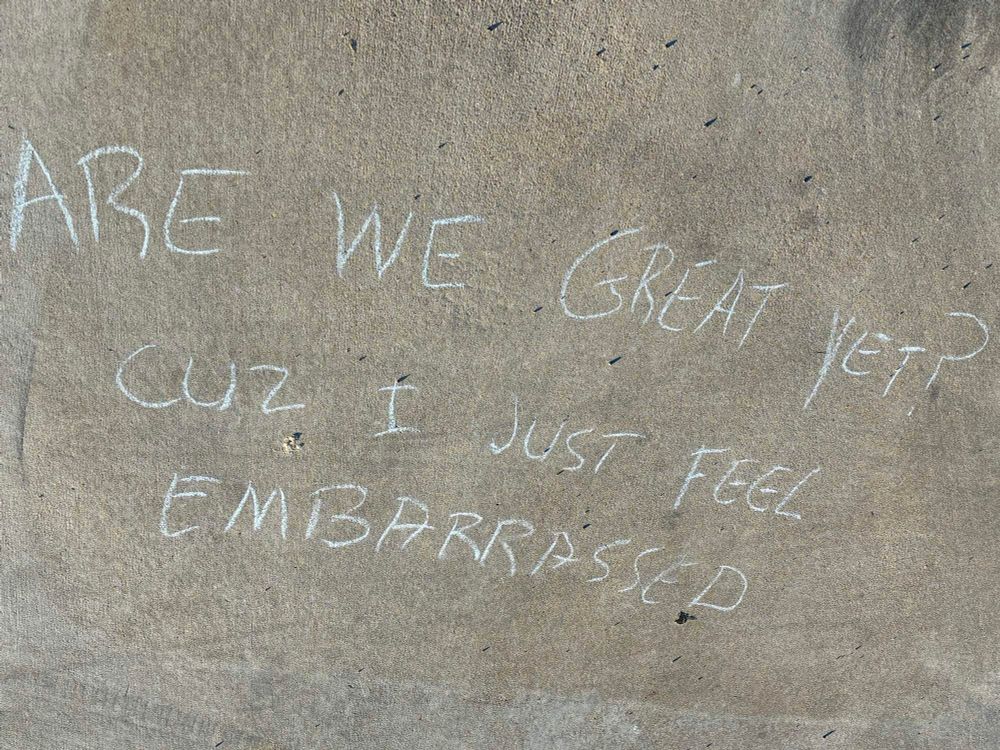 ARE WE GREAT YET?
CUZ I JUST FEEL
EMBARRASSED